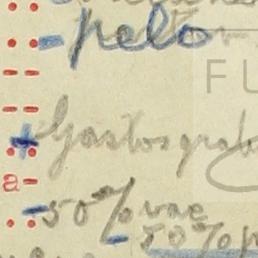 - pelo
+ Gastos grat
a-
- 50% vae
- 50% p